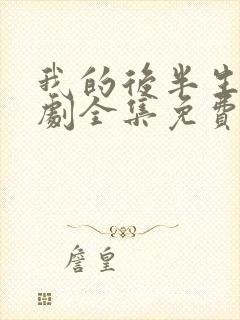 我的後半生
劇全集免費
詹皇